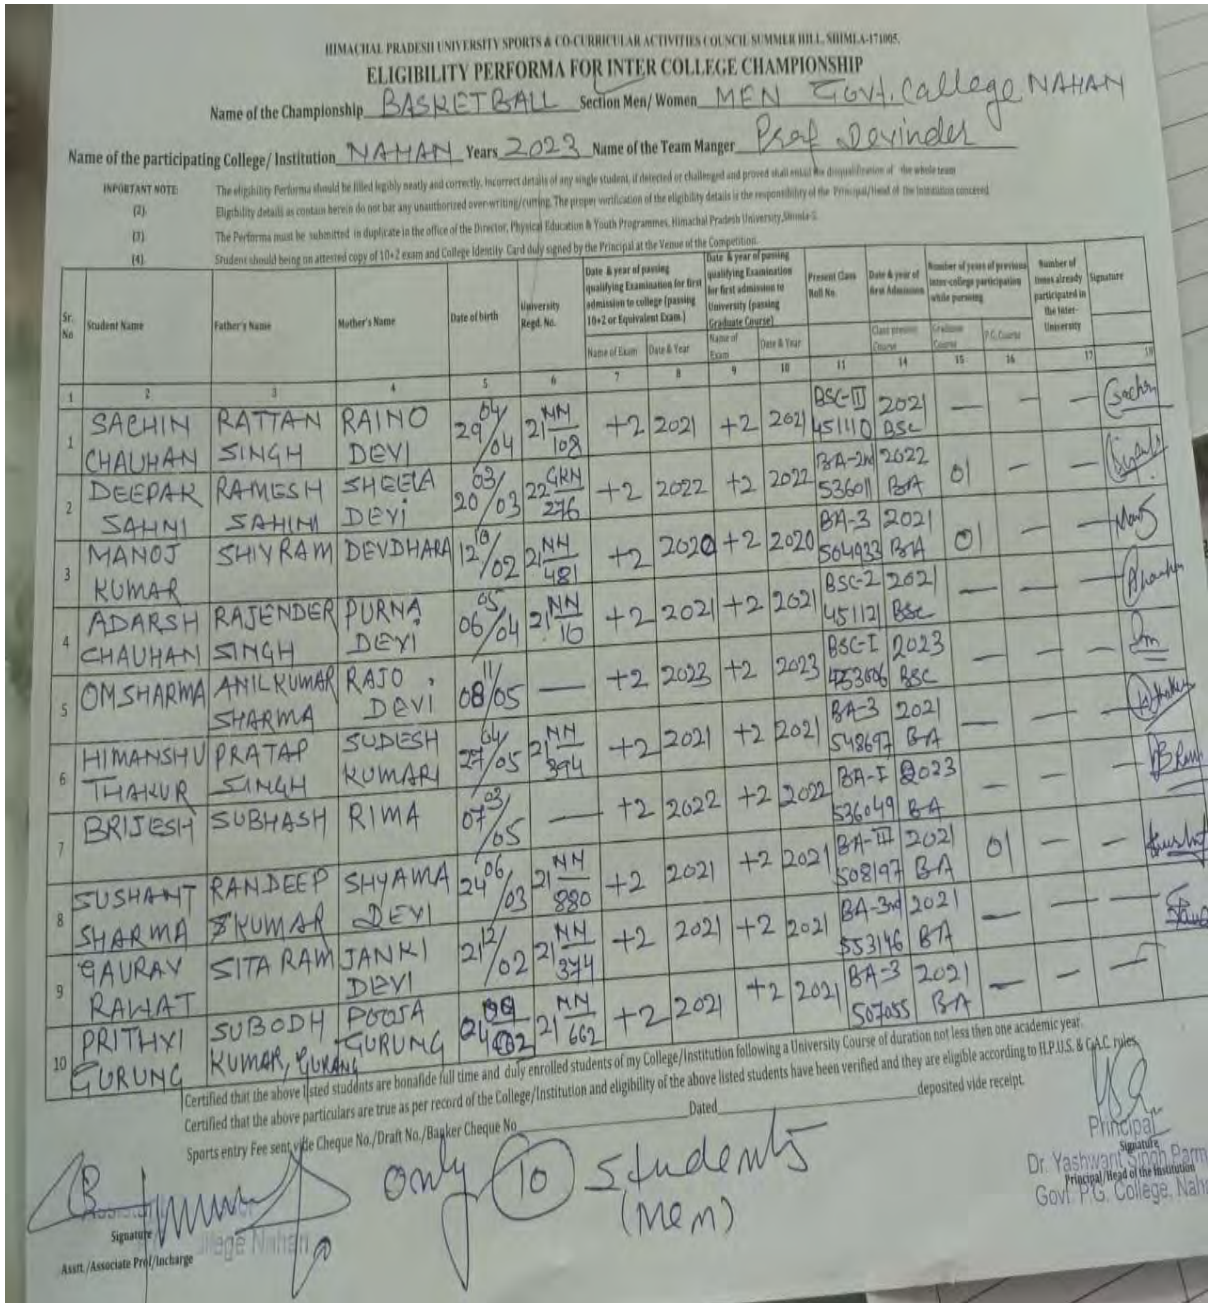 HIMACHAL PRADESH UNIVERSITY SPORTS & CO-CURRICULAR ACTIVITIES COUNCIL SUMMER HILL, SHIMLA-171005.
ELIGIBILITY PERFORMA FOR INTER COLLEGE CHAMPIONSHIP
Name of the Championship BASKETBALL Section Men/ Women MEN Govt. College NAHAN
Name of the participating College/ Institution NAHAN Years 2023 Name of the Team Manger Prof Devinder
INPORTANT NOTE The eligibility Performa should be filled legibly neatly and correctly. Incorrect details of any single student, if detected or challenged and proved shall entail the disqualification of the whole team
(2). Eligibility details as contain herein do not bar any unauthorized over-writing/cutting. The proper verification of the eligibility details is the responsibility of the Principal/Head of the Institution concered
(3) The Performa must be submitted in duplicate in the office of the Director, Physical Education & Youth Programmes, Himachal Pradesh University, Shimla-5.
(4) Student should being on attested copy of 10+2 exam and College Identity Card duly signed by the Principal at the Venue of the Competition.
Sr. No Student Name Father's Name Mother's Name Date of birth University Regd. No. Date & year of passing qualifying Examination for first admission to college (passing 10+2 or Equivalent Exam.) Date & year of passing qualifying Examination for first admission to University (passing Graduate Course) Present Class Roll No. Date & year of first Admission Number of years of previous inter-college participating while pursuing Number of times already participated in the Inter-University Signature
Name of Exam Date & Year Name of Exam Date & Year Class present Course Graduate Course P.G. Course
1 2 3 4 5 6 7 8 9 10 11 14 15 16 17 18
1 SACHIN CHAUHAN RATTAN SINGH RAINO DEVI 29/04/04 21NN/108 +2 2021 +2 2021 BSC-III 451110 2021 BSc — — — Sachin
2 DEEPAK SAHNI RAMESH SAHINI SHEELA DEVI 20/03/03 22GRN/276 +2 2022 +2 2022 BA-2nd 536011 2022 BA 01 — —
3 MANOJ KUMAR SHIVRAM DEVDHARA 12/10/02 21NN/481 +2 2020 +2 2020 BA-3 504933 2021 BA 01 — —
4 ADARSH CHAUHAN RAJENDER SINGH PURNA DEVI 06/05/04 21NN/16 +2 2021 +2 2021 BSC-2 451121 2021 BSc — — —
5 OM SHARMA ANIL KUMAR SHARMA RAJO DEVI 08/11/05 — +2 2023 +2 2023 BSC-I 2023 BSC — — — Om
6 HIMANSHU THAKUR PRATAP SINGH SUDESH KUMARI 27/04/05 21NN/394 +2 2021 +2 2021 BA-3 548697 2021 BA — — —
7 BRIJESH SUBHASH RIMA 07/03/05 — +2 2022 +2 2022 BA-I 536049 2023 BA — — —
8 SUSHANT SHARMA RANDEEP KUMAR SHYAMA DEVI 24/06/03 21NN/880 +2 2021 +2 2021 BA-III 508197 2021 BA 01 — —
9 GAURAV RAWAT SITA RAM JANKI DEVI 21/12/02 21NN/374 +2 2021 +2 2021 BA-3rd 553146 2021 BA — — —
10 PRITHVI GURUNG SUBODH KUMAR, GURANG POOJA GURUNG 21NN/662 +2 2021 +2 2021 BA-3 507055 2021 BA — — —
Certified that the above listed students are bonafide full time and duly enrolled students of my College/Institution following a University Course of duration not less then one academic year.
Certified that the above particulars are true as per record of the College/Institution and eligibility of the above listed students have been verified and they are eligible according to H.P.U.S. & C.A.C. rules
Sports entry Fee sent vide Cheque No./Draft No./Banker Cheque No Dated deposited vide receipt.
only 10 students
(Men)
Principal
Signature
Dr. Yashwant Singh Parm
Principal/Head of the Institution
Govt. P.G. College, Naha
Signature
College Nahan
Asstt./Associate Prof/Incharge